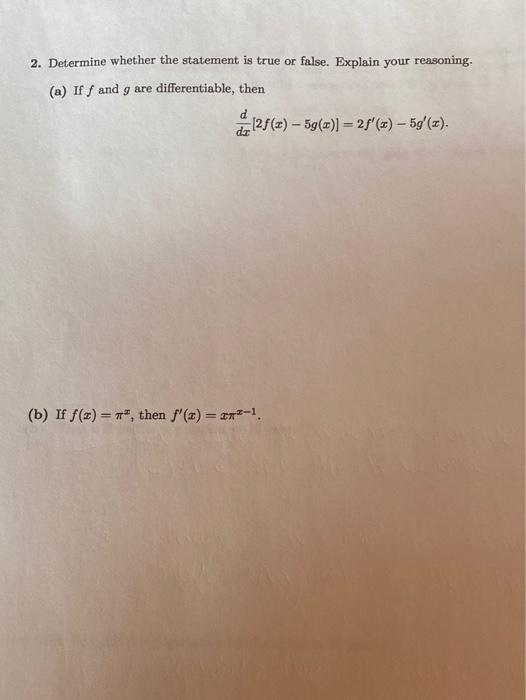 2. Determine whether the statement is true or false. Explain your reasoning.
(a) If f and g are differentiable, then
d/dx [2f(x) − 5g(x)] = 2f′(x) − 5g′(x).
(b) If f(x) = πˣ, then f′(x) = xπˣ⁻¹.